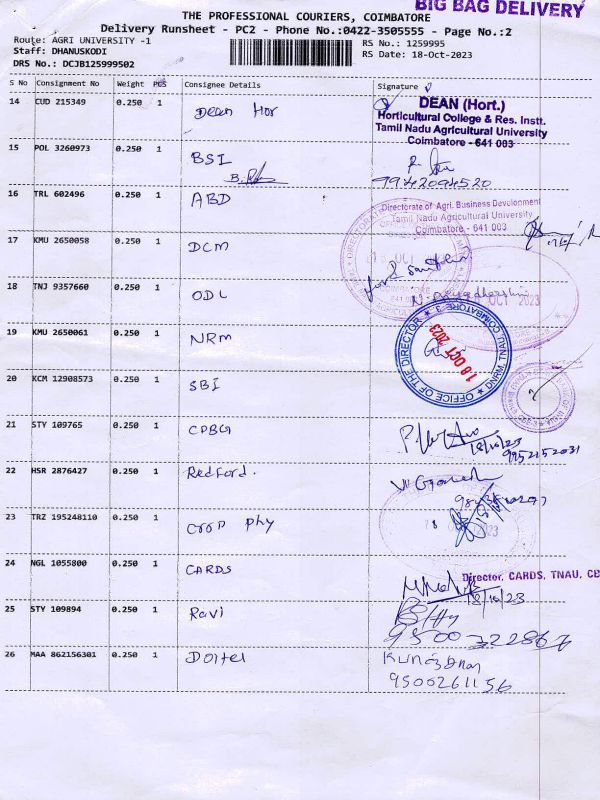 BIG BAG DELIVERY
THE PROFESSIONAL COURIERS, COIMBATORE
Delivery Runsheet - PC2 - Phone No.:0422-3505555 - Page No.:2
Route: AGRI UNIVERSITY -1
RS No.: 1259995
Staff: DHANUSKODI
RS Date: 18-Oct-2023
DRS No.: DCJB125999502
S No Consignment No Weight PCS Consignee Details Signature
14 CUD 215349 0.250 1 Dean Hor
DEAN (Hort.)
Horticultural College & Res. Instt.
Tamil Nadu Agricultural University
Coimbatore - 641 003
15 POL 3260973 0.250 1 BSI
9942094520
16 TRL 602496 0.250 1 ABD
Directorate of Agri. Business Development
Tamil Nadu Agricultural University
Coimbatore - 641 003
17 KMU 2650058 0.250 1 DCM
18 TNJ 9357660 0.250 1 ODL
OCT 2023
19 KMU 2650061 0.250 1 NRM
OFFICE OF THE DIRECTOR
DNRM, TNAU, COIMBATORE - 3
18 OCT 2023
20 KCM 12908573 0.250 1 SBI
21 STY 109765 0.250 1 CPBG
18/10/23
9952152031
22 HSR 2876427 0.250 1 Redford.
23 TRZ 195248110 0.250 1 crop phy
24 NGL 1055800 0.250 1 CARDS
Director, CARDS, TNAU, CB
18/10/23
25 STY 109894 0.250 1 Ravi
9500322867
26 MAA 862156301 0.250 1
9500261156